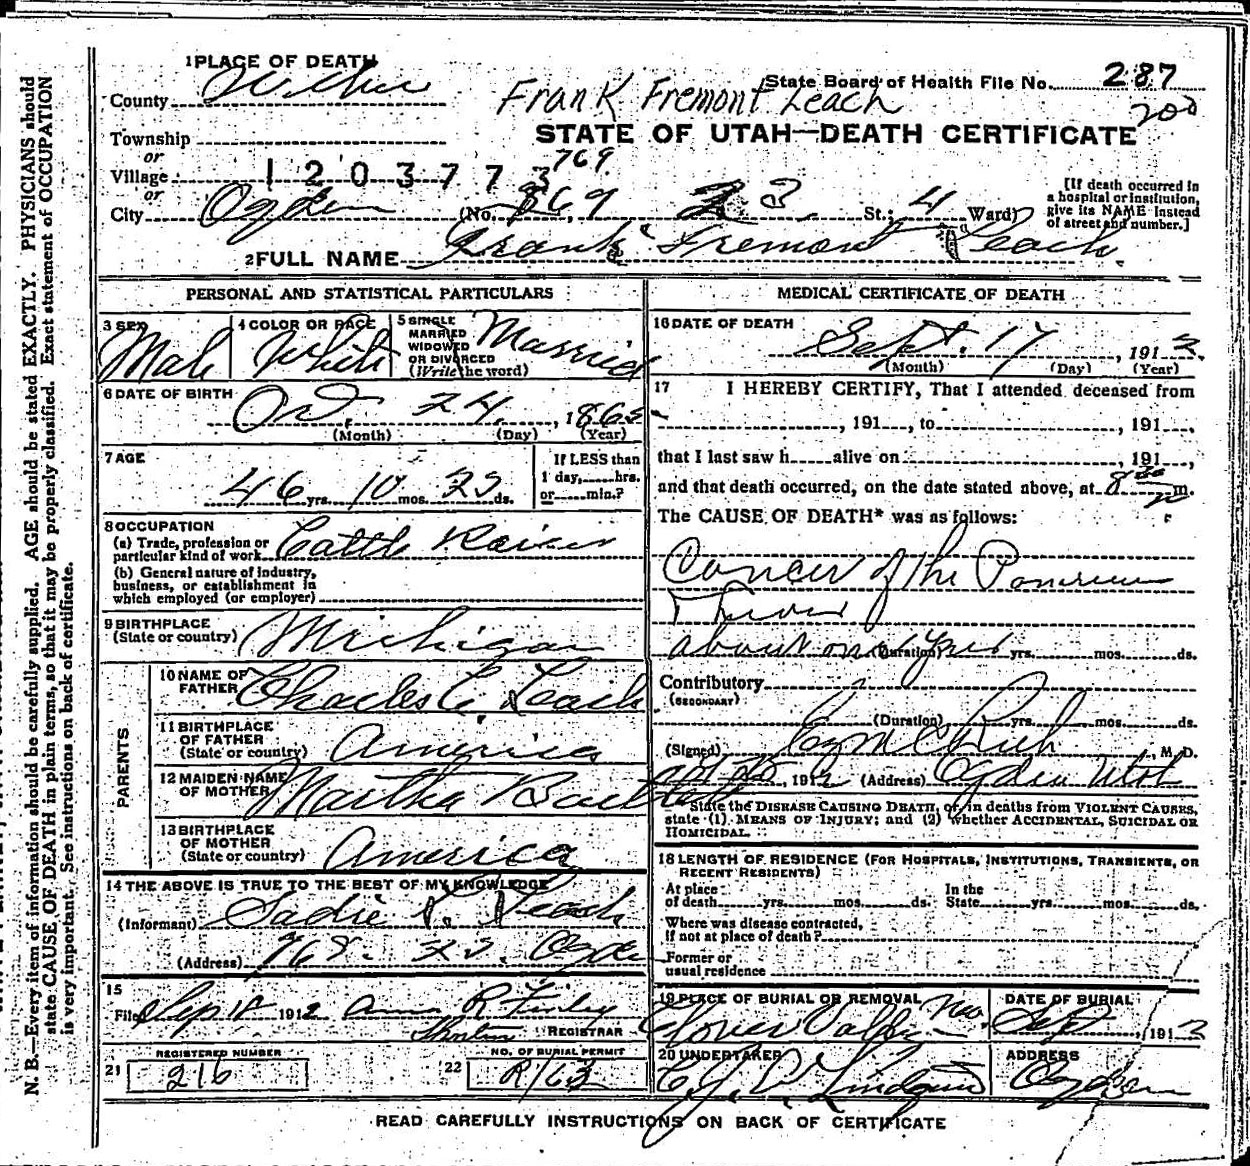 1 PLACE OF DEATH
County Weber
State Board of Health File No. 287
Frank Fremont Leach
200
Township
STATE OF UTAH—DEATH CERTIFICATE
or
Village
1203773
769
or
City Ogden (No. 869, 23 St.; 4 Ward)
[If death occurred in a hospital or institution, give its NAME instead of street and number.]
2 FULL NAME Frank Fremont Leach
PERSONAL AND STATISTICAL PARTICULARS
3 SEX Male
4 COLOR OR RACE White
5 SINGLE MARRIED WIDOWED OR DIVORCED (Write the word) Married
6 DATE OF BIRTH 24, 186
(Month) (Day) (Year)
7 AGE
46 yrs. 10 mos. 23 ds.
If LESS than 1 day, hrs. or min.?
8 OCCUPATION
(a) Trade, profession or particular kind of work Cattle Raiser
(b) General nature of industry, business, or establishment in which employed (or employer)
9 BIRTHPLACE
(State or country) Michigan
PARENTS
10 NAME OF FATHER Charles C. Leach
11 BIRTHPLACE OF FATHER (State or country) America
12 MAIDEN NAME OF MOTHER Martha Bartlett
13 BIRTHPLACE OF MOTHER (State or country) America
14 THE ABOVE IS TRUE TO THE BEST OF MY KNOWLEDGE
(Informant) Sadie Leach
(Address) 23
15
Filed Sep 18 1912 Anna R
REGISTRAR
21 REGISTERED NUMBER 216
22 NO. OF BURIAL PERMIT R163
MEDICAL CERTIFICATE OF DEATH
16 DATE OF DEATH
Sept. 17, 191
(Month) (Day) (Year)
17 I HEREBY CERTIFY, That I attended deceased from
, 191 , to , 191 ,
that I last saw h alive on , 191 ,
and that death occurred, on the date stated above, at 8 30 m.
The CAUSE OF DEATH* was as follows:
Cancer of the Pancreas
about one year (Duration) yrs. mos. ds.
Contributory
(SECONDARY)
(Duration) yrs. mos. ds.
(Signed) Rich, M. D.
, 1912 (Address) Ogden Utah
* State the DISEASE CAUSING DEATH, or, in deaths from VIOLENT CAUSES, state (1) MEANS OF INJURY; and (2) whether ACCIDENTAL, SUICIDAL OR HOMICIDAL.
18 LENGTH OF RESIDENCE (FOR HOSPITALS, INSTITUTIONS, TRANSIENTS, OR RECENT RESIDENTS)
At place of death yrs. mos. ds. In the State yrs. mos. ds.
Where was disease contracted, if not at place of death?
Former or usual residence
19 PLACE OF BURIAL OR REMOVAL Clover Valley Nev.
DATE OF BURIAL Sept , 191
20 UNDERTAKER Lindquist
ADDRESS Ogden
READ CAREFULLY INSTRUCTIONS ON BACK OF CERTIFICATE
N. B.—Every item of information should be carefully supplied. AGE should be stated EXACTLY. PHYSICIANS should
state CAUSE OF DEATH in plain terms, so that it may be properly classified. Exact statement of OCCUPATION
is very important. See instructions on back of certificate.